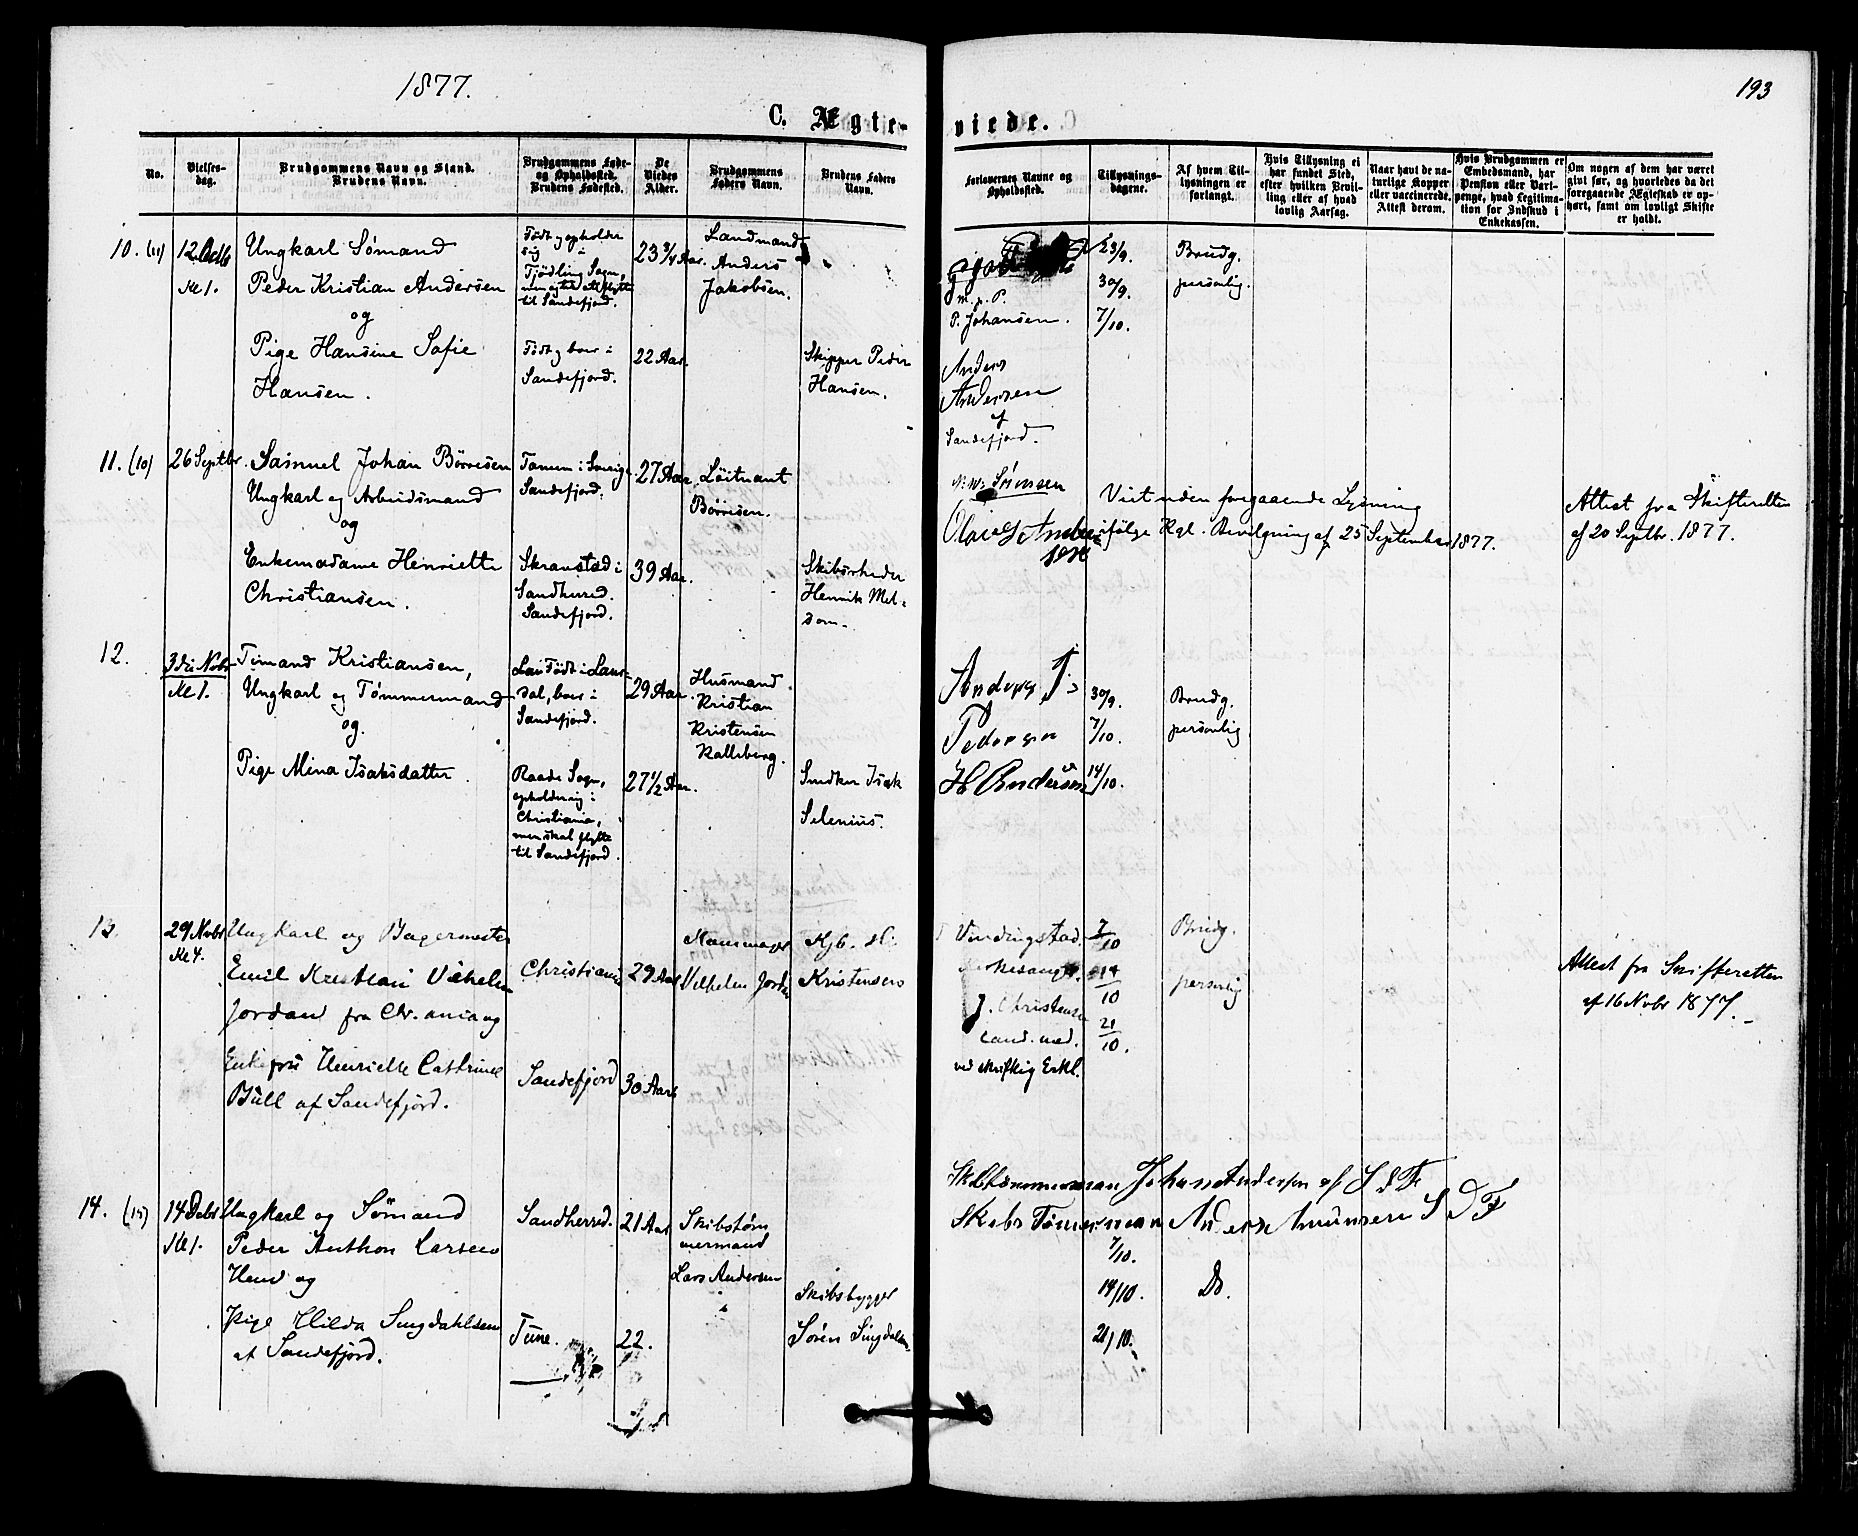 1877.
193
C. Ægte-
viede.
No.
Vielses-
dag.
Brudgommens Navn og Stand.
Brudens Navn.
Brudgommens Føde-
og Opholdssted.
Brudens Fødested.
De
Viedes
Alder.
Brudgommens
Faders Navn.
Brudens Faders
Navn.
Forlovernes Navne og
Opholdssted.
Tillysnings-
dagene.
Af hvem Til-
lysningen er
forlangt.
Hvis Tillysning ei
har fundet Sted,
efter hvilken Bevil-
ling eller af hvad
lovlig Aarsag.
Naar havt de na-
turlige Kopper
eller vaccinerede.
Attest derom.
Hvis Brudgommen er
Embedsmand, har
Pension eller Vart-
penge, hvad Legitima-
tion for Indskud i
Enkekassen.
Om nogen af dem har været
givt før, og hvorledes da det
foregaaende Ægteskab er op-
hørt, samt om lovligt Skifte
er holdt.
10. (11)
12. Octb
Kl 1.
Ungkarl Sømand
Peder Kristian Andersen
og
Pige Hansine Sofie
Hansen.
Født og opholder
sig i
Tjødling Sogn,
til Sandefjord.
Født og boer i
Sandefjord.
23 3/4 Aar.
22 Aar.
Landmand
Anders
Jakobsen.
Skipper Peder
Hansen.
m. p. P.
P. Johansen.
Anders
Andersen
af
Sandefjord.
23/9.
30/9.
7/10.
Brudg.
personlig.
11. (10)
26 Septbr.
Samuel Johan Börresen
Ungkarl og Arbeidsmand
og
Enkemadame Henriette
Christiansen.
Tanum i Sverig.
Sandefjord.
Skranstad i
Sandherred.
Sandefjord.
27 Aar.
39 Aar.
Löitnant
Börresen.
Skibsrheder
Henrik Mel-
som.
Sørensen
Viet uden foregaaende Lysning
ifølge Kgl. Bevilgning af 25 September 1877.
Attest fra Skifteretten
af 20 Septbr. 1877.
12.
3die Nvbr
Kl 1.
Timand Kristiansen,
Ungkarl og Tømmermand
og
Pige Mina Isaksdatter.
Født i Laur-
dal, boer i
Sandefjord.
Raade Sogn,
opholder sig i
Christiania,
men skal flytte
til Sandefjord.
29 Aar.
27 1/2 Aar.
Husmand
Kristian
Kristensen
Kalleberg.
Snedker Isak
Selenius.
Anders P.
Pedersen
H Andersen
30/9.
7/10.
14/10.
Brudg.
personlig.
13.
29 Nvbr
Kl 4.
Ungkarl og Bagermester
Emil Kristian Vilhelm
Jordan fra Chr.ania og
Enkefru Henriette Cathrine
Büll af Sandefjord.
Christiania
Sandefjord
29 Aar
30 Aar
Vilhelm Jordan
Kjb.
Kristensen
Vindingstad.
J. Christensen
cand. med.
ved skriftlig Erkl.
7/10
14/10
21/10.
Brudg.
personlig
Attest fra Skifteretten
af 16 Nvbr 1877.
14. (15)
14 Debr
Kl 1.
Ungkarl og Sømand
Peder Anthon Larsen
og
Pige Hilda Singdahlsen
af Sandefjord.
Sandherred.
Tune.
21 Aar
22.
Skibstøm
mermand
Lars Andersen
Skibsbygger
Sören Singdalsen
Skibstømmerman Johan Andersen af S d F
Skibs Tømmerman Anders Amunsen S D F
7/10.
14/10.
21/10.
Do.